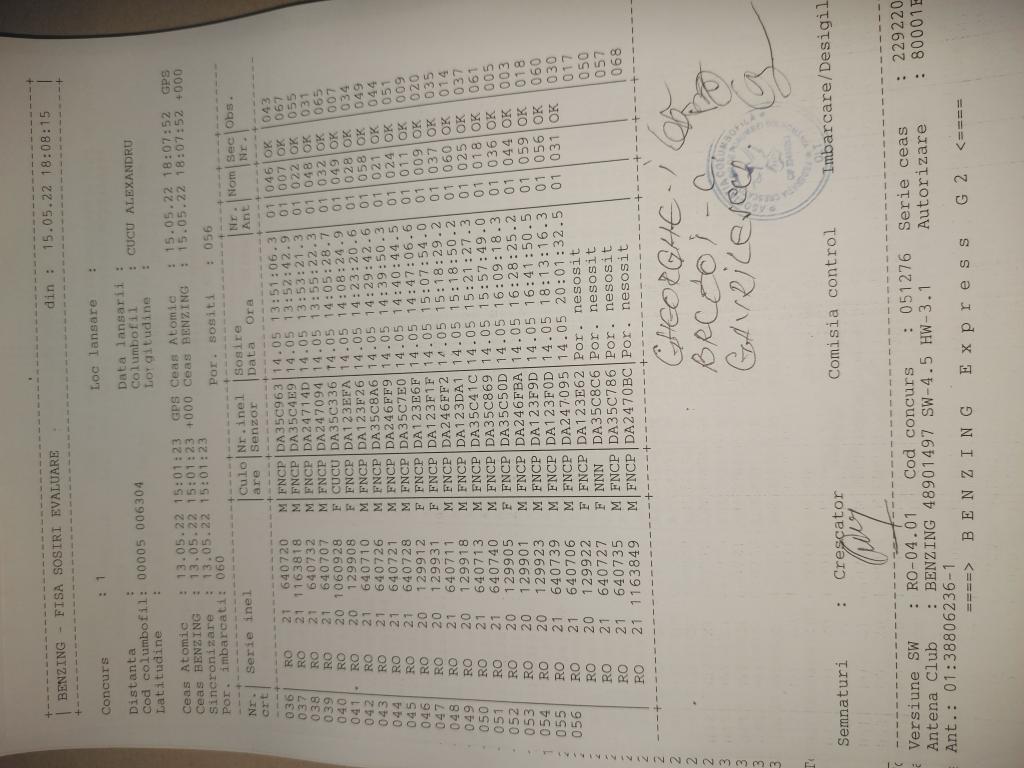 BENZING - FISA SOSIRI EVALUARE din : 15.05.22 18:08:15
Concurs : 1 Loc lansare :
Distanta : Data lansarii :
Cod columbofil: 00005 006304 Columbofil : CUCU ALEXANDRU
Latitudine : Lorgitudine :
Ceas Atomic : 13.05.22 15:01:23 GPS Ceas Atomic : 15.05.22 18:07:52 GPS
Ceas BENZING : 13.05.22 15:01:23 +000 Ceas BENZING : 15.05.22 18:07:52 +000
Sincronizare : 13.05.22 15:01:23
Por. imbarcati: 060 Por. sositi : 056
Nr. Serie inel Culo Nr.inel Sosire Nr. Nom Sec Obs.
crt are Senzor Data Ora Ant Nr.
036 RO 21 640720 M FNCP DA35C963 14.05 13:51:06.3 01 046 OK 043
037 RO 21 1163818 M FNCP DA35C4E9 14.05 13:52:42.9 01 007 OK 067
038 RO 21 640732 M FNCP DA24714D 14.05 13:53:21.3 01 022 OK 055
039 RO 21 640707 M FNCP DA247094 14.05 13:55:22.3 01 042 OK 031
040 RO 20 1060928 F CUCU DA35C336 14.05 14:05:28.7 01 002 OK 065
041 RO 20 129908 F FNCP DA123EFA 14.05 14:08:24.9 01 049 OK 007
042 RO 21 640710 M FNCP DA123F26 14.05 14:23:20.6 01 028 OK 034
043 RO 21 640726 M FNCP DA35C8A6 14.05 14:29:42.6 01 058 OK 049
044 RO 21 640721 M FNCP DA246FF9 14.05 14:39:50.3 01 021 OK 044
045 RO 21 640728 M FNCP DA35C7E0 14.05 14:40:44.5 01 024 OK 051
046 RO 20 129912 F FNCP DA123E6F 14.05 14:47:06.6 01 011 OK 009
047 RO 20 129931 F FNCP DA123F1F 14.05 15:07:54.0 01 009 OK 020
048 RO 21 640711 M FNCP DA246FF2 14.05 15:18:29.2 01 037 OK 035
049 RO 20 129918 M FNCP DA123DA1 14.05 15:18:50.2 01 060 OK 014
050 RO 21 640713 M FNCP DA35C41C 14.05 15:21:27.3 01 025 OK 037
051 RO 21 640740 M FNCP DA35C869 14.05 15:57:49.0 01 018 OK 061
052 RO 20 129905 F FNCP DA35C50D 14.05 16:09:18.3 01 036 OK 005
053 RO 20 129901 M FNCP DA246FBA 14.05 16:28:25.2 01 044 OK 003
054 RO 20 129923 M FNCP DA123F9D 14.05 16:41:50.5 01 059 OK 018
055 RO 21 640739 M FNCP DA123F0D 14.05 18:13:16.3 01 056 OK 060
056 RO 21 640706 M FNCP DA247095 14.05 20:01:32.5 01 031 OK 030
RO 20 129922 F FNCP DA123E62 Por. nesosit 017
RO 21 640727 F NNN DA35C8C6 Por. nesosit 050
RO 21 640735 M FNCP DA35C786 Por. nesosit 057
RO 21 1163849 M FNCP DA2470BC Por. nesosit 068
GHEORGHE.
Semnaturi : Crescator Comisia control Imbarcare/Desigil
Versiune SW : RO-04.01 Cod concurs : 051276 Serie ceas : 229220
Antena Club : BENZING 48901497 SW-4.5 HW-3.1 Autorizare : 80001E
Ant.: 01:38806236-1
====> B E N Z I N G E x p r e s s G 2 <====